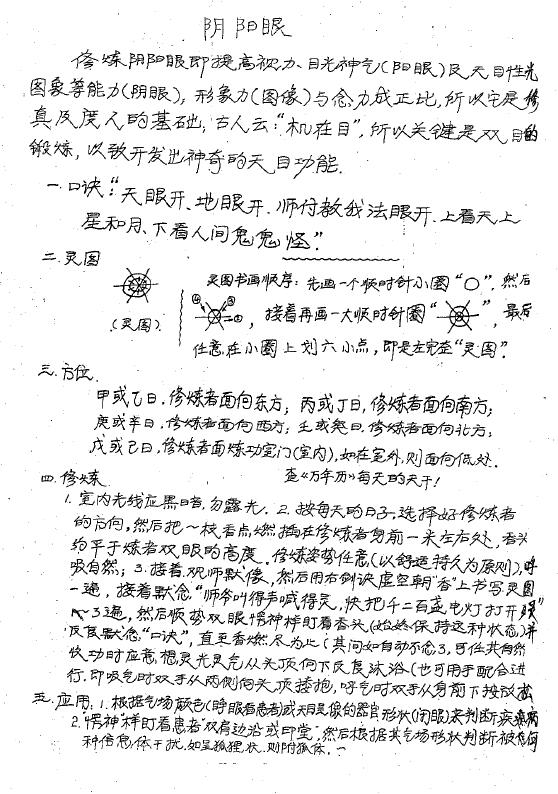 阴阳眼
修炼阴阳眼即提高视力、目光神气(阳眼)及天目性光
图象等能力(阴眼),形象力(图像)与念力成正比,所以它是修
真及度人的基础,古人云:“机在目”,所以关键是双目的
锻炼,以致开发出神奇的天目功能.
一.口诀:“天眼开、地眼开.师付教我法眼开.上看天上
星和月、下看人间鬼鬼怪”.
二.灵图
灵图书画顺序:先画一个顺时针小圈“○”.然后
①②③,接着再画一大顺时针圈“ ”,最后
(灵图).
任意在小圈上划六小点,即是左完整“灵图”.
三.方位.
甲或乙日,修炼者面向东方;丙或丁日,修炼者面向南方;
庚或辛日,修炼者面向西方;壬或癸日,修炼者面向北方;
戊或己日,修炼者面炼功室门(室内),如在室外,则面向低处.
查《万年历》每天的天干!
四.修炼
1.室内光线应黑暗,勿露光.2.按每天的日子,选择好修炼者
的方向,然后把一枝香点燃插在修炼者身前一米左右处,香头
约平于炼者双眼的高度.修炼姿势任意(以舒适持久为原则),呼
吸自然;3.接着,观师默像,然后用右剑诀虚空朝“香”上书写灵图
一遍,接着默念“师爷叫得声喊得灵,快把千二百盏电灯打开
3遍,然后顺势双眼愣神样盯着香头(始终保持这种状态)并
反复默念“口诀”,直至香燃尽为止(其间如自动不念了,可任其自然
收功时应意想灵光灵气从头顶向下反复沐浴(也可用手配合进
行.即吸气时双手从两侧向头顶搂抱,呼气时双手从身前下按放松
五.应用.1.根据气场颜色(睁眼看患者)或天目显像的器官形状(闭眼)来判断疾病
2.“愣神”样盯着患者“双肩边沿”或印堂”.然后根据其气场形状判断被何
种信息体干扰.如呈狐狸状.则附狐体.一